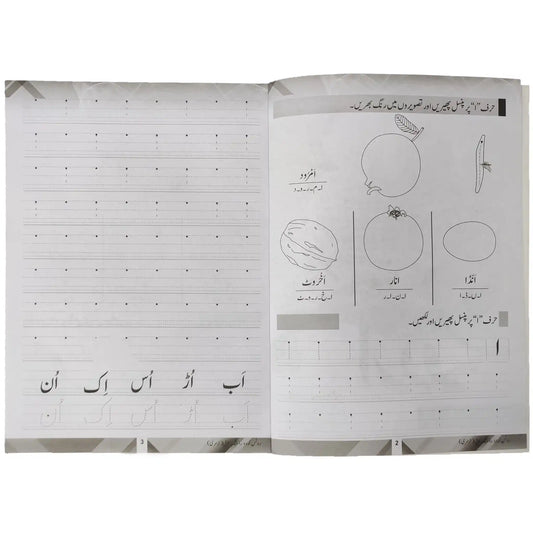 حرف "ا" پر پنسل پھیریں اور تصویروں میں رنگ بھریں۔
اَمْرُود
ا-م-ر-و-د
اَنْڈا
ا-ن-ڈ-ا
انار
ا-ن-ا-ر
اَخْرَوٹ
ا-خ-ر-و-ٹ
حرف "ا" پر پنسل پھیریں اور لکھیں۔
ا
2
اَب اُڑ اُس اِک اُن
اَب اُڑ اُس اِک اُن
3